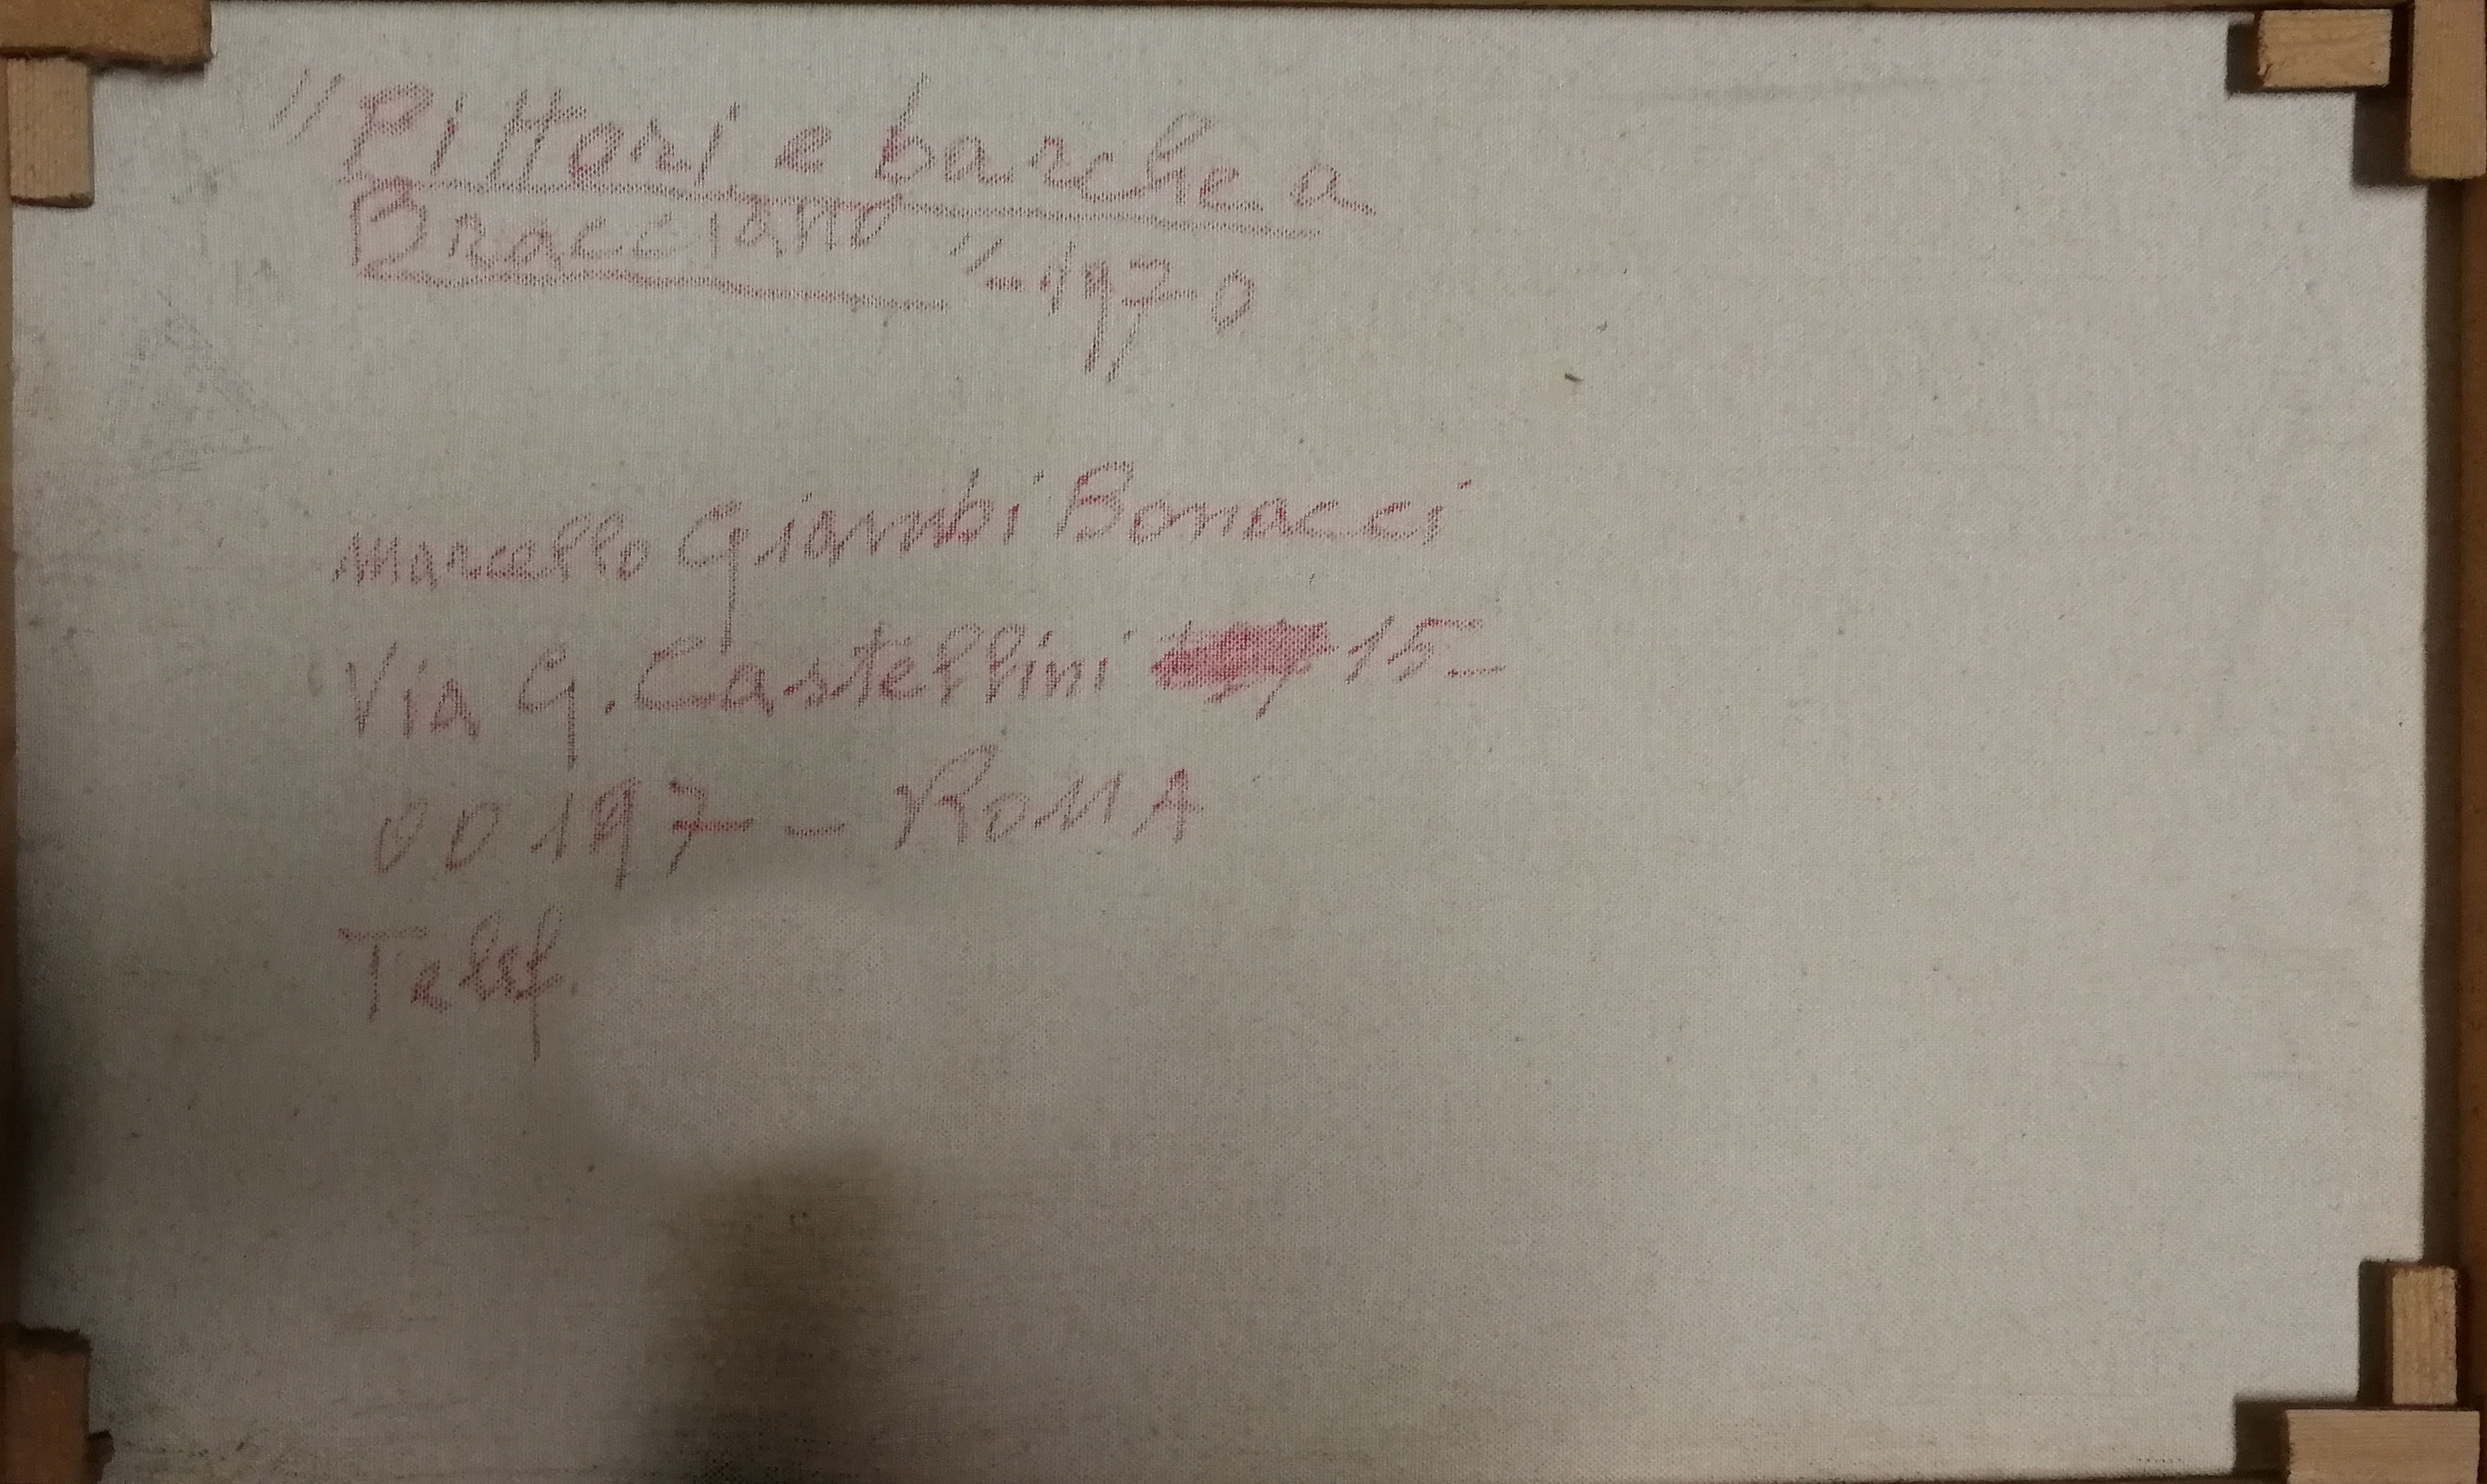 "Pittori e barche a
Bracciano" - 1970
Marcello Giambi Bonacci
Via G. Castellini 15 -
00197 - ROMA
Telef.